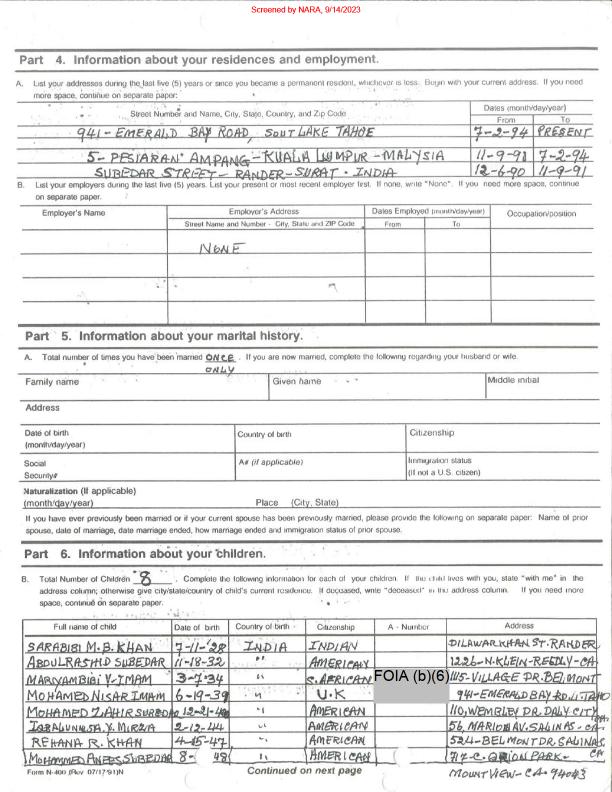 Screened by NARA, 9/14/2023
Part 4. Information about your residences and employment.
A. List your addresses during the last five (5) years or since you became a permanent resident, whichever is less. Begin with your current address. If you need
more space, continue on separate paper:
Street Number and Name, City, State, Country, and Zip Code
Dates (month/day/year)
From To
941-EMERALD BAY ROAD, SOUTLAKE TAHOE 7-2-94 PRESENT
5-PESIARAN AMPANG-KUALA LUMPUR-MALYSIA 11-9-91 7-2-94
SUBEDAR STREET-RANDER-SURAT-INDIA 12-6-90 11-9-91
B. List your employers during the last five (5) years. List your present or most recent employer first. If none, write "None". If you need more space, continue
on separate paper.
Employer's Name Employer's Address Dates Employed (month/day/year) Occupation/position
Street Name and Number - City, State and ZIP Code From To
NONE
Part 5. Information about your marital history.
A. Total number of times you have been married ONCE. If you are now married, complete the following regarding your husband or wife.
ONLY
Family name Given name Middle initial
Address
Date of birth
(month/day/year)
Country of birth Citizenship
Social
Security#
A# (if applicable) Immigration status
(If not a U.S. citizen)
Naturalization (If applicable)
(month/day/year) Place (City, State)
If you have ever previously been married or if your current spouse has been previously married, please provide the following on separate paper: Name of prior
spouse, date of marriage, date marriage ended, how marriage ended and immigration status of prior spouse.
Part 6. Information about your children.
B. Total Number of Children 8. Complete the following information for each of your children. If the child lives with you, state "with me" in the
address column; otherwise give city/state/country of child's current residence. If deceased, write "deceased" in the address column. If you need more
space, continue on separate paper.
Full name of child Date of birth Country of birth Citizenship A - Number Address
SARABIBI M.B. KHAN 7-11-'28 INDIA INDIAN DILAWARKHAN ST. RANDER
ABDULRASHID SUBEDAR 11-18-32 " AMERICAN 1226-N. KLEIN-REEDLY-CA
MARYAMBIBI Y-IMAM 3-7-34 " S. AFRICAN FOIA (b)(6) 1115-VILLAGE DR. BELMONT
MOHAMED NISAR IMAM 6-19-39 " U.K 941-EMERALD BAY RD.
MOHAMED ZAHIR SUBEDAR 12-21-40 " AMERICAN 110, WEMBLEY DR. DALY CITY CA.
MIRZA 2-12-44 " AMERICAN 56, MARION AV. SALINAS-CA.
REHANA R. KHAN 4-15-47 " AMERICAN 524-BELMONT DR. SALINAS CA
MOHAMMED ANEES SUBEDAR 8- 48 " AMERICAN 717-C. ORION PARK-
Form N-400 (Rev 07/17/91)N Continued on next page MOUNTVIEW-CA-94043